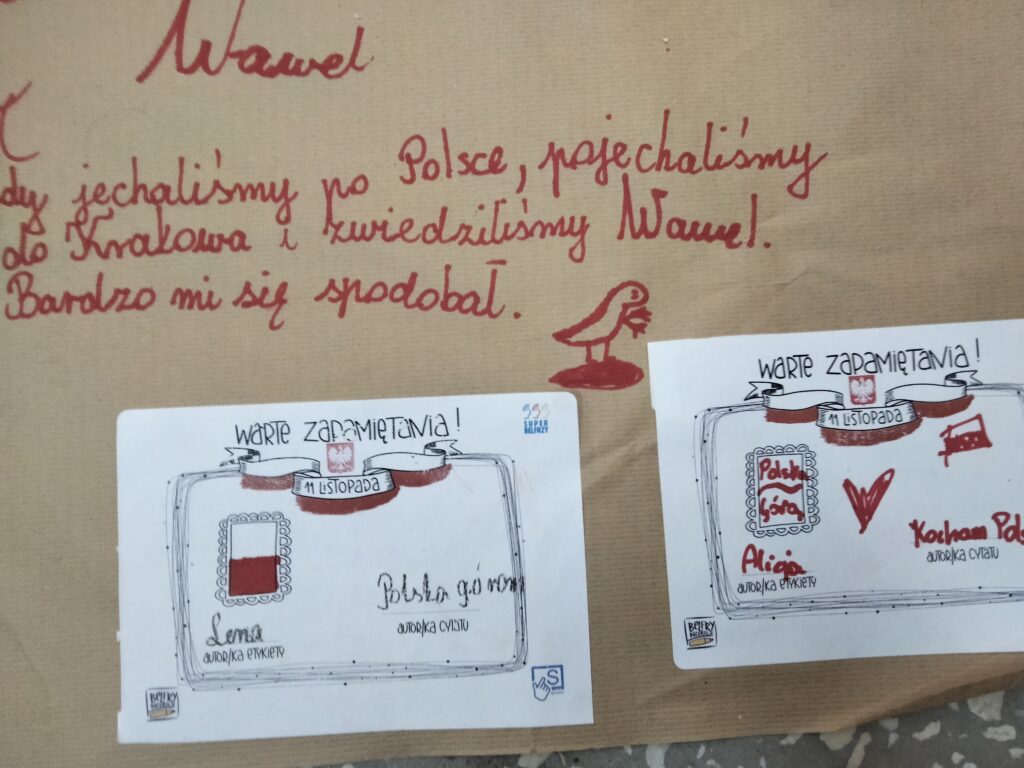 Wawel
dy jechaliśmy po Polsce, pojechaliśmy
do Krakowa i zwiedziliśmy Wawel.
Bardzo mi się spodobał.
WARTE ZAPAMIĘTANIA!
11 LISTOPADA
SUPER
BELFRZY
Polska górom
Lena
AUTOR/KA CYTATU
AUTOR/KA ETYKIETY
WARTE ZAPAMIĘTANIA!
11 LISTOPADA
Polska
Górą
Kocham Pols
Alicja
AUTOR/KA CYTATU
AUTOR/KA ETYKIETY